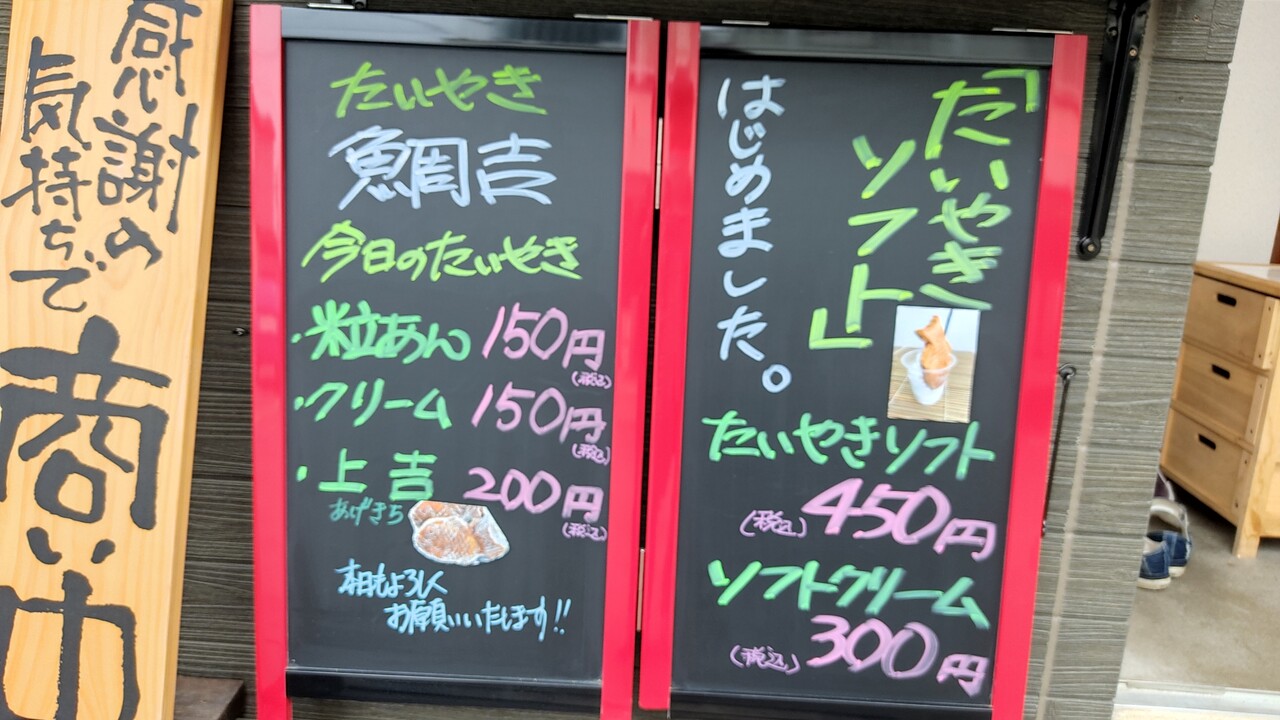 感謝の
気持ちで
商い中
たいやき
鯛吉
今日のたいやき
・粒あん 150円
(税込)
・クリーム 150円
(税込)
・上吉 200円
あげきち
(税込)
本日もよろしく
お願いいたします!!
「たいやき
ソフト」
はじめました。
たいやきソフト
(税込) 450円
ソフトクリーム
(税込) 300円